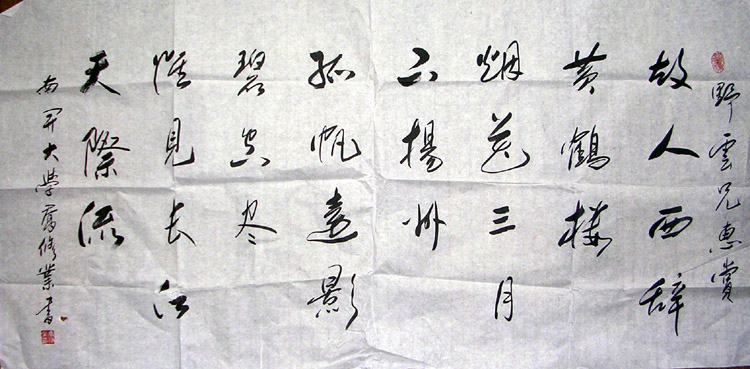 野雲兄惠賞
故人西辞
黄鶴楼
烟花三月
下揚州
孤帆遠影
碧空尽
惟見长江
天際流
南开大學修業書